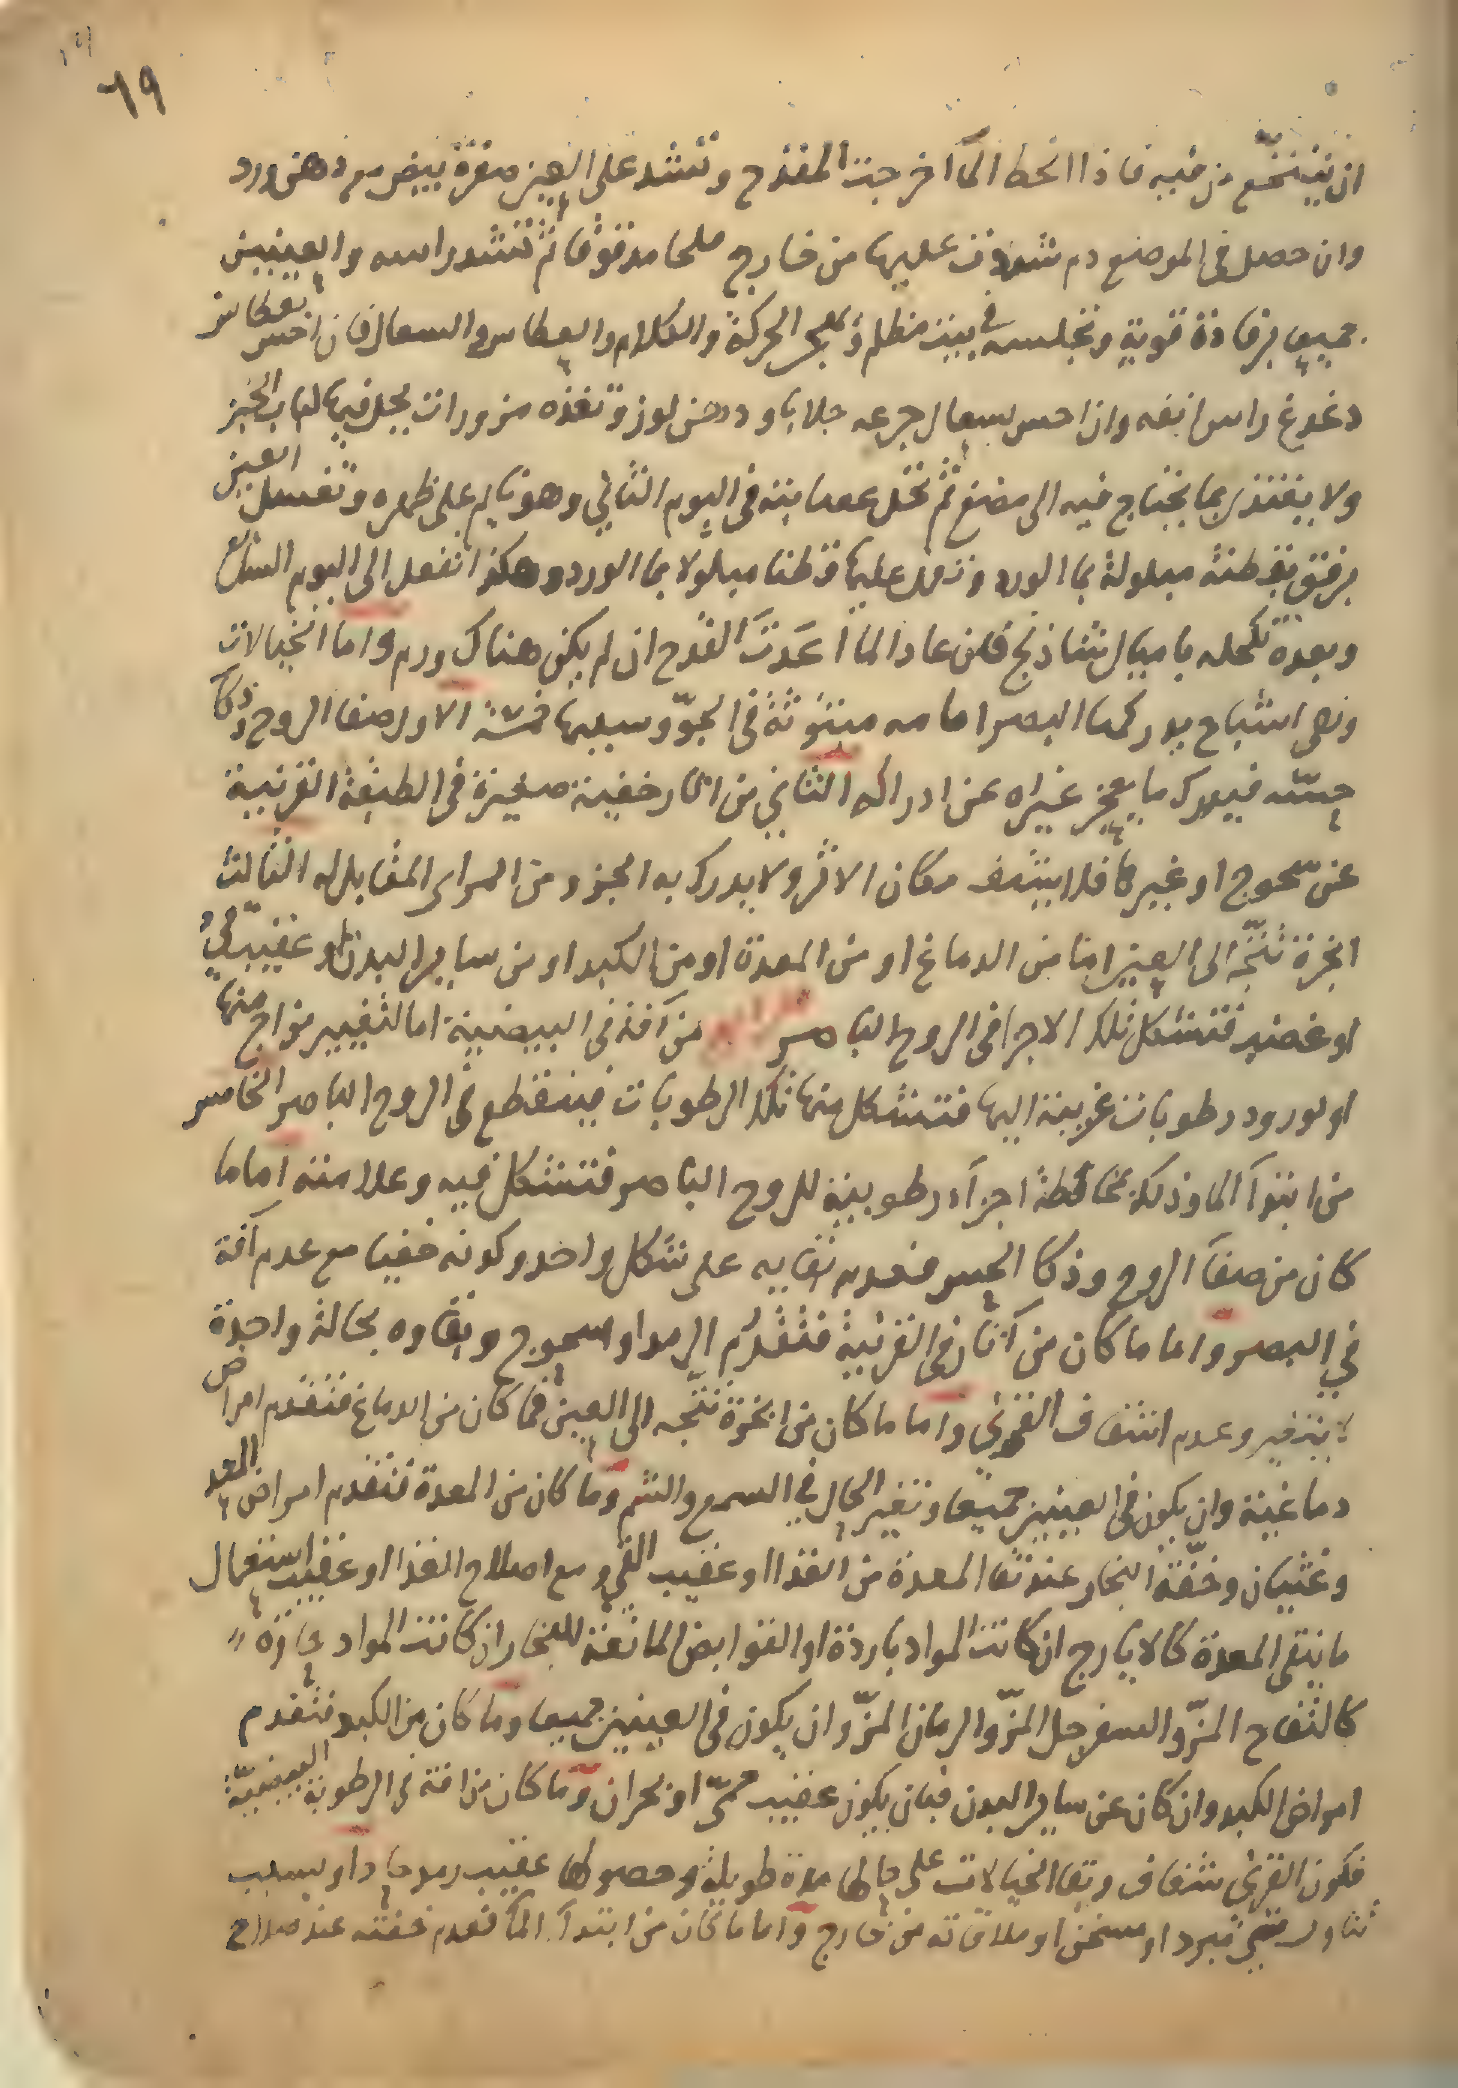 ٦٩
ان يتنخع من فيه فاذا انحط الماء اخرجت المقدح وتشد على العين صفرة بيض مع دهن ورد
وان حصل في الموضع دم شددت عليها من خارج ملحا مدقوقا ثم تشد راسه والعينين
جميعا برفادة قوية وتجلسه في بيت مظلم ويهجر الحركة والكلام والعطاس والسعال فان احس بعطاس
دغدغ راس انفه واذا احس بسعال جرعه جلابا ودهن لوز وتغذه مزورات يجعل فيها لباب الخبز
ولا يغتذي بما يحتاج فيه الى مضغ ثم تحل عصابته في اليوم الثاني وهو نايم على ظهره وتغسل العين
برفق بقطنة مبلولة بما الورد وتجعل عليها قطنا مبلولا بما الورد وهكذا تفعل الى اليوم السابع
وبعده تكحله باميال شاذنج فان عاد الما اعدت القدح ان لم يكن هناك ورم واما الخيالات
وهي اشباح يدركها البصر امامه مبثوثة في الجو وسببها خمسة الاول صفا الروح وذكآ
حسه فيدرك ما يعجز غيراه عن ادراكه الثاني من اثار خفية صغيرة في الطبقة القرنية
عن سحوج او غيرها فلا يشف مكان الاثر ولا يدرك به الجزو من المراى المقابل له الثالث
ابخرة تتجه الى العين اما من الدماغ او من المعدة او من الكبد او من ساير البدن او عقيب قي
او غضب فتتشكل تلك الاجزا في الروح الباصر الرابع من آفة في البيضية اما لتغيير مزاج منها
او لورود رطوبات غريبة اليها فتتشكل منها تلك الرطوبات فينقطع في الروح الباصر الخامس
من ابتدآ الما وذلك مخالطة اجزاء رطوبية للروح الباصر فتتشكل فيه وعلامته اما ما
كان من صفآ الروح وذكا الحس فعدم بقايه على شكل واحد وكونه خفيا مع عدم آفة
في البصر واما ما كان من آثار في القرنية فتقدم الرمد او سحوج وبقاوه بحالة واحدة
لا يتغير وعدم اشفاف القرني واما ما كان من ابخرة تتجه الى العين فما كان من الدماغ فتقدم امراض
دماغية وان يكون في العينين جميعا وتغير الحال في السمع والشم وما كان من المعدة فتقدم امراض المعد
وغثيان وخفة البخار عند نقا المعدة من الغذا او عقيب القي ومع اصلاح الغذا او عقيب استعمال
ما ينقي المعدة كالايارج ان كانت المواد باردة او القوابض المانعة للبخار ان كانت المواد حارة
كالتفاح المز والسفرجل المز والرمان المز وان يكون في العينين جميعا وما كان من الكبد فتقدم
امراض الكبد وان كان عن ساير البدن فبان يكون عقيب حمى او بحران وما كان من افة في الرطوبة البيضية
فكون القرني شفاف وبقا الخيالات على حالها مدة طويلة وحصولها عقيب رمد حاد او بسبب
تناول شي مبرد او مسخن او ملاقاته من خارج واما ما كان من ابتدآ المآ فعدم خفته عند صلاح